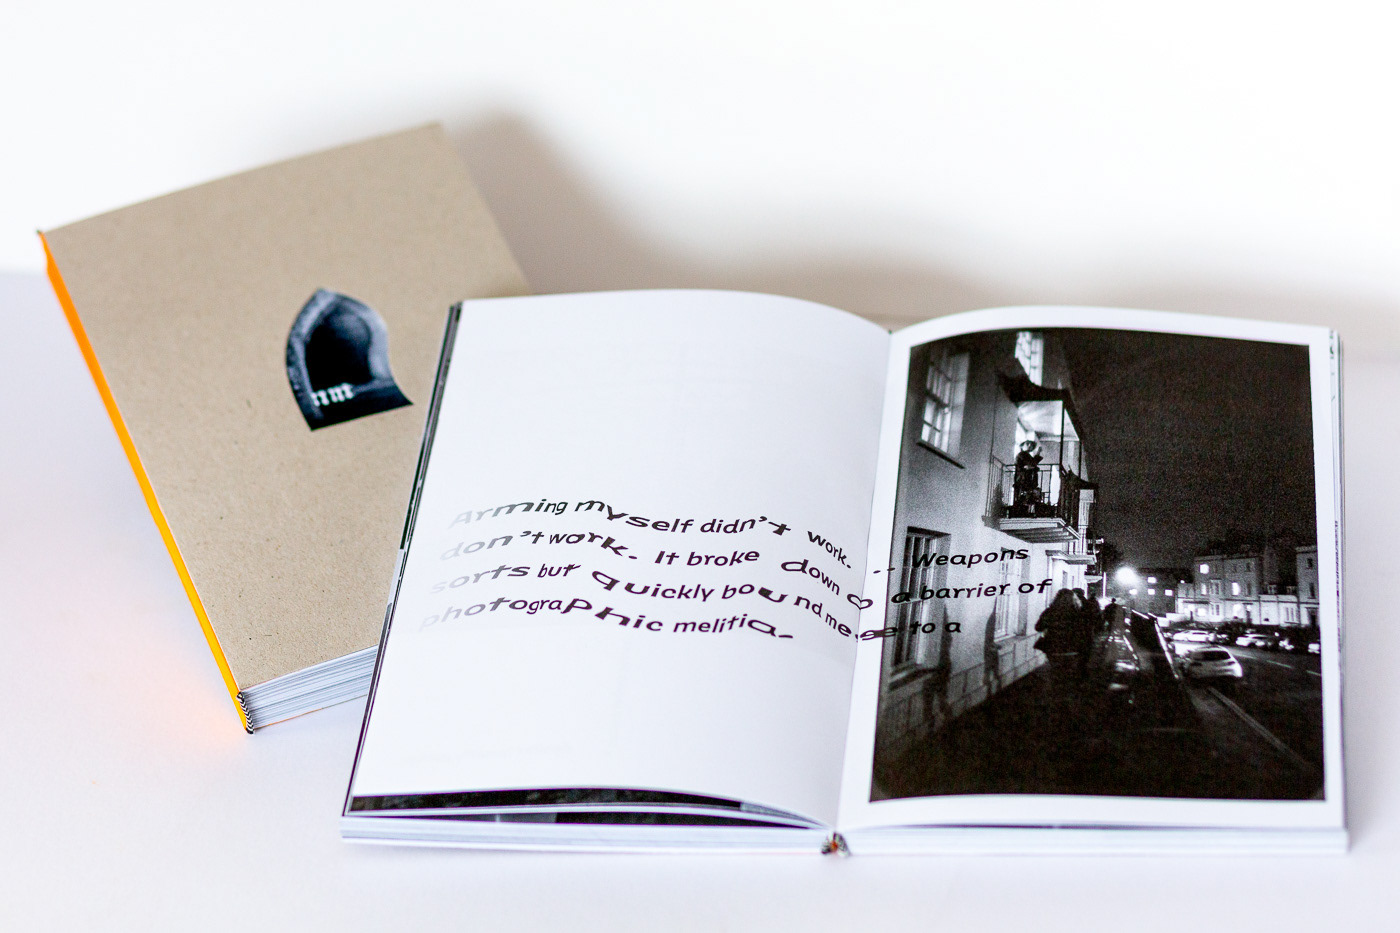 Arming myself didn't work. Weapons
don't work. It broke down a barrier of
sorts but quickly bound me to a
photographic melitia.